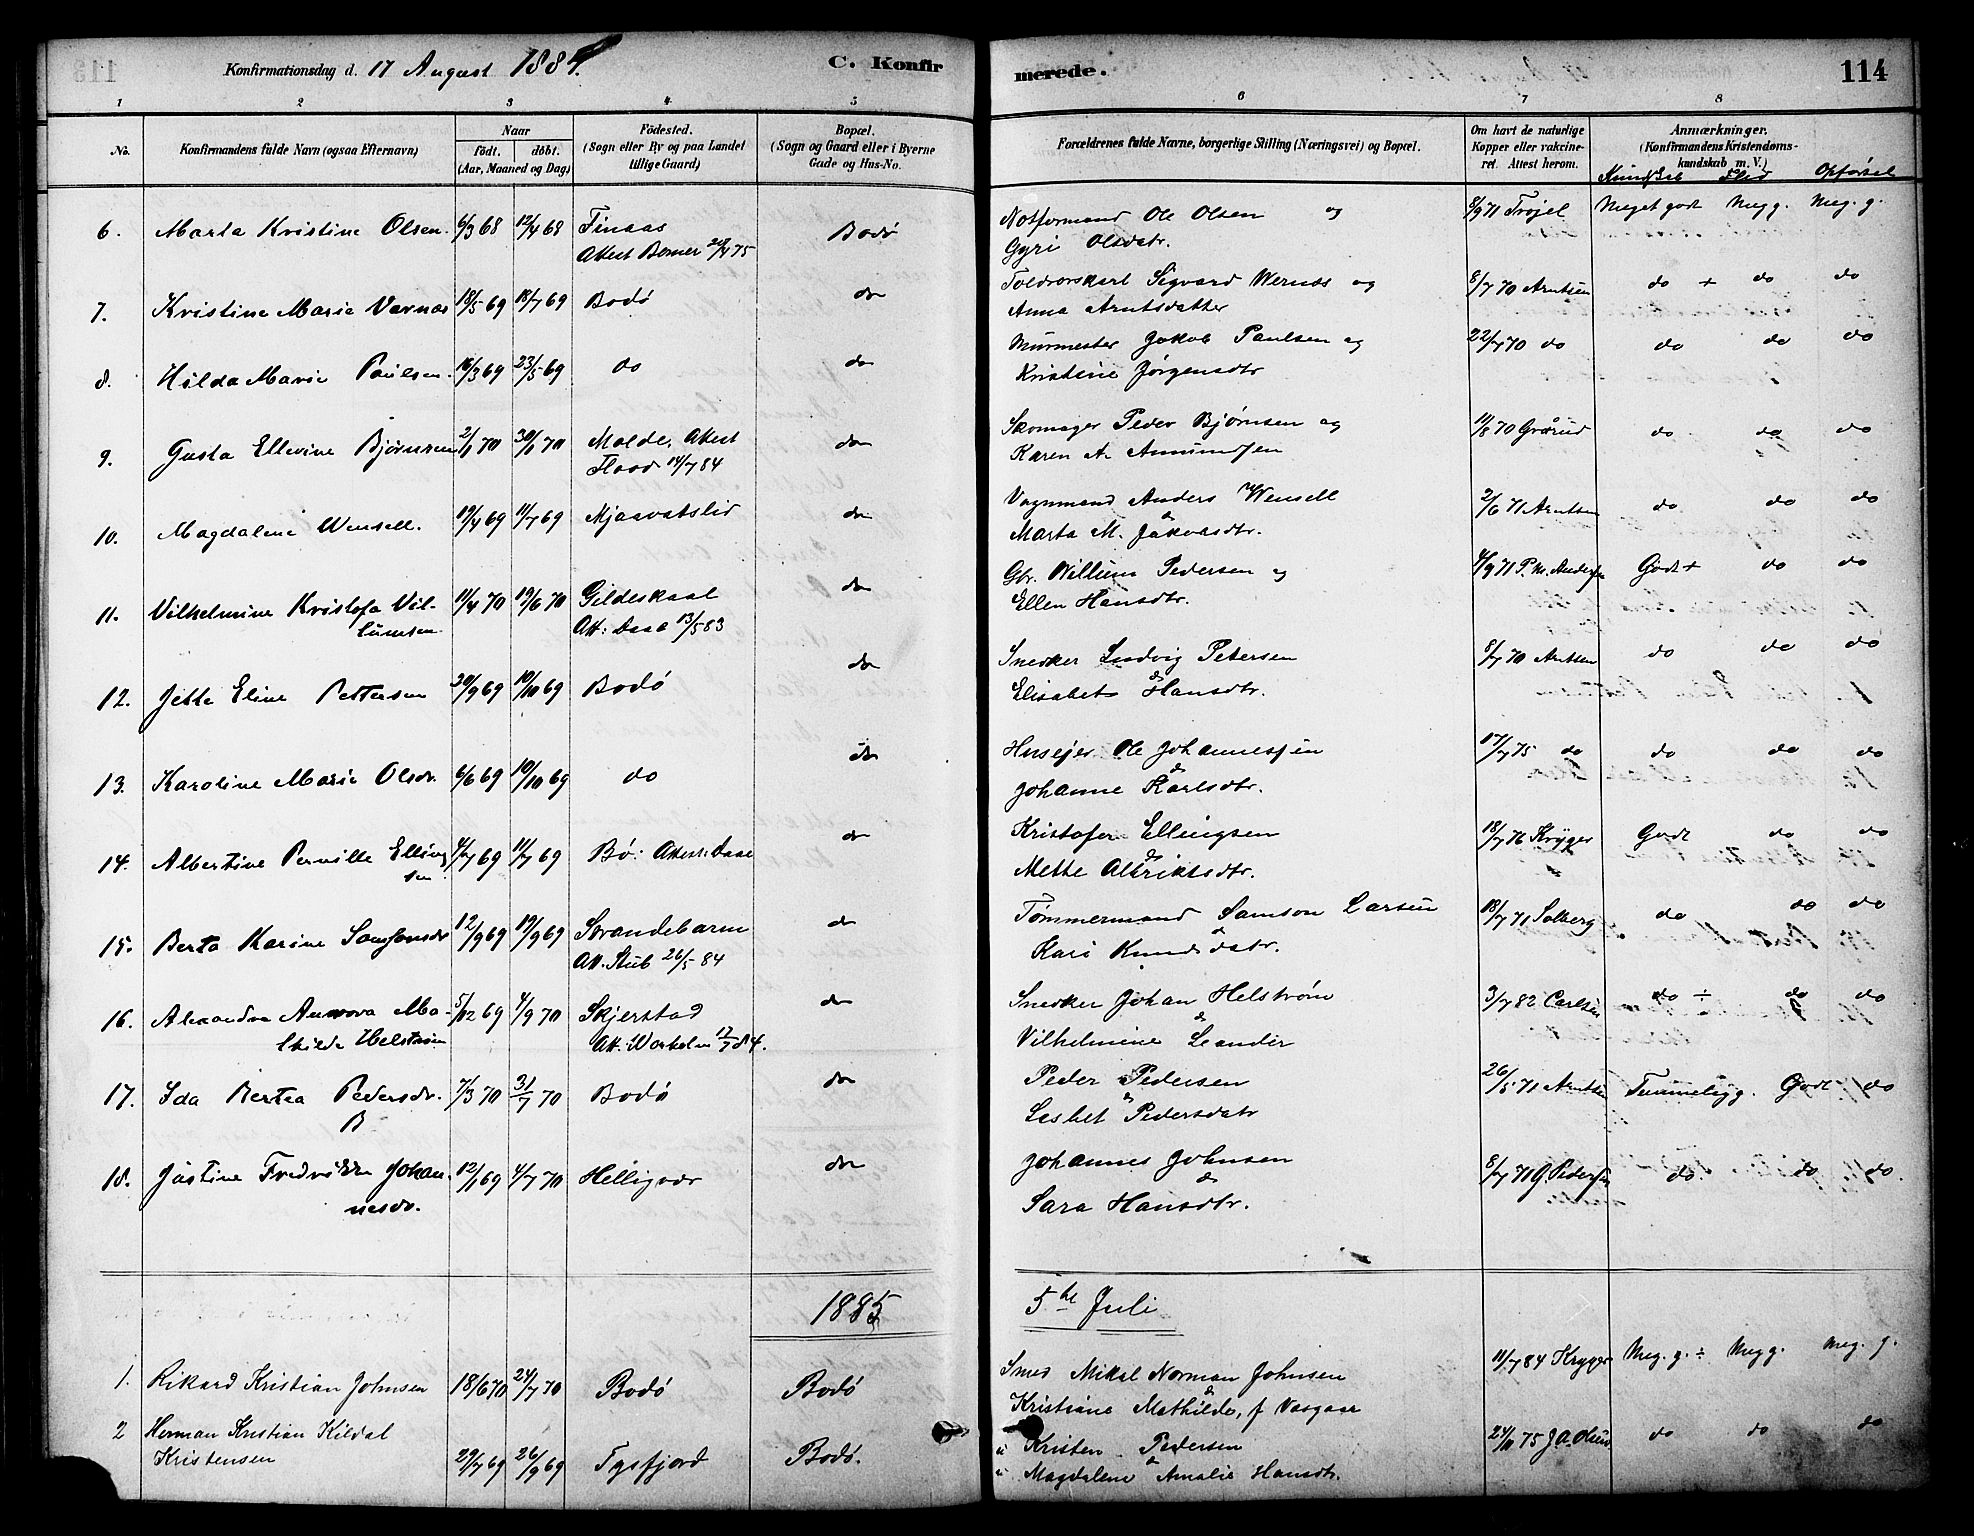 Konfirmationsdag d. 17 August 1884. C. Konfir
merede. 114
1 2 3 4 5
6 7 8
No. Konfirmandens fulde Navn (ogsaa Efternavn) Naar Födested. Bopæl.
født. döbt. (Sogn eller By og paa Landet (Sogn og Gaard eller i Byerne
(Aar, Maaned og Dag) tillige Gaard) Gade og Hus-No.
Forældrenes fulde Navne, borgerlige Stilling (Næringsvei) og Bopæl. Om havt de naturlige Anmærkninger.
Kopper eller vakcine- (Konfirmandens Kristendoms-
ret. Attest herom. kundskab m. V.)
Kundskab Flid Opførsel
6. Marta Kristine Olsen 6/3 68 12/4 68 Finaas Bodø
Attest Bomer 75
Notformand Ole Olsen og 8/9 71 Trojel Meget godt Megg. Meg. g.
Gyri Olsdatr.
7. Kristine Marie Vernæs 18/5 69 18/7 69 Bodø do
Toldrorskarl Sigvard Wernæs og 8/7 70 Arntsen do + do do
Anna Arntsdatter
8. Hilda Marie Paulsen 16/3 69 23/5 69 do do
Murmester Jakob Paulsen og 22/7 70 do do do do
Kristine Jørgensdtr
9. Gusta Ellevine Bjørnsen 2/1 70 30/1 70 Molde, Attest do
Flood 14/7 84
Skomager Peder Bjørnsen og 11/8 70 Grørud do do do
Karen A. Amundsen
10. Magdalene Wensell. 19/4 69 11/7 69 Mjaavatslid do
Vognmand Anders Wensell 2/6 71 Arntsen do do do
Marta M. Jakobsdtr.
11. Vilhelmine Kristofa Vil- 11/4 70 19/6 70 Gildeskaal do
lumsen Att: Daae 13/5 83
Gbr. Willum Pedersen og 4/9 71 P. M. Andersen Godt + do do
Ellen Hansdtr.
12. Jette Eline Pettersen 20/9 69 10/10 69 Bodø do
Snedker Ludvig Petersen 8/7 70 Arntsen do do do
Elisabet & Hansdtr.
13. Karoline Marie Olsdr. 6/6 69 10/10 69 do do
Husejer Ole Johannessen 17/7 75 do do do do
Johanne & Karlsdtr.
14. Albertine Pernille Elling 4/7 69 11/7 69 Bø: Attest: Daae do
sen
Kristofer Ellingsen 18/7 76 Krýger Godt do do
Mette Albriktsdtr.
15. Berta Karine Samsonsdr 12/9 69 19/9 69 Strandebarm do
Att. Stub 26/5 84
Tømmermand Samson Larsen 18/7 71 Solberg do do do
Kari Knudsdatr.
16. Alexandra Aurora Ma- 5/12 69 4/9 70 Skjerstad do
thilde Helstrøm Att: Workelm 12/7 84.
Snedker Johan Helstrøm 3/7 82 Carlsen do ÷ do do
Vilhelmine Leander
17. Ida Bertea Pedersdr. 7/3 70 31/7 70 Bodø do
B
Peder Pedersen 26/5 71 Arntsen Temmeligg. Godt do
Lesbet & Pedersdatr
18. Justine Fredrikke Johan 12/1 69 4/7 70 Helligvær do
nesdr.
Johannes Johnsen 8/7 71 G. Pedersen do. do do.
Sara Hansdtr.
1885
5te Juli
1. Rikard Kristian Johnsen 18/6 70 24/7 70 Bodø Bodø
Smed Mikal Norman Johnsen 11/7 84 Kryger Meg. g. ÷ Megg. Meg. g.
Kristiane & Mathilde, f Vasgaar
2 Herman Kristian Kildal
Kristensen 29/7 69 26/9 69 Tysfjord Bodø.
Kristen Pedersen 24/11 75 J. A. Olsen do do do
Magdalene & Amalie Hansdtr.